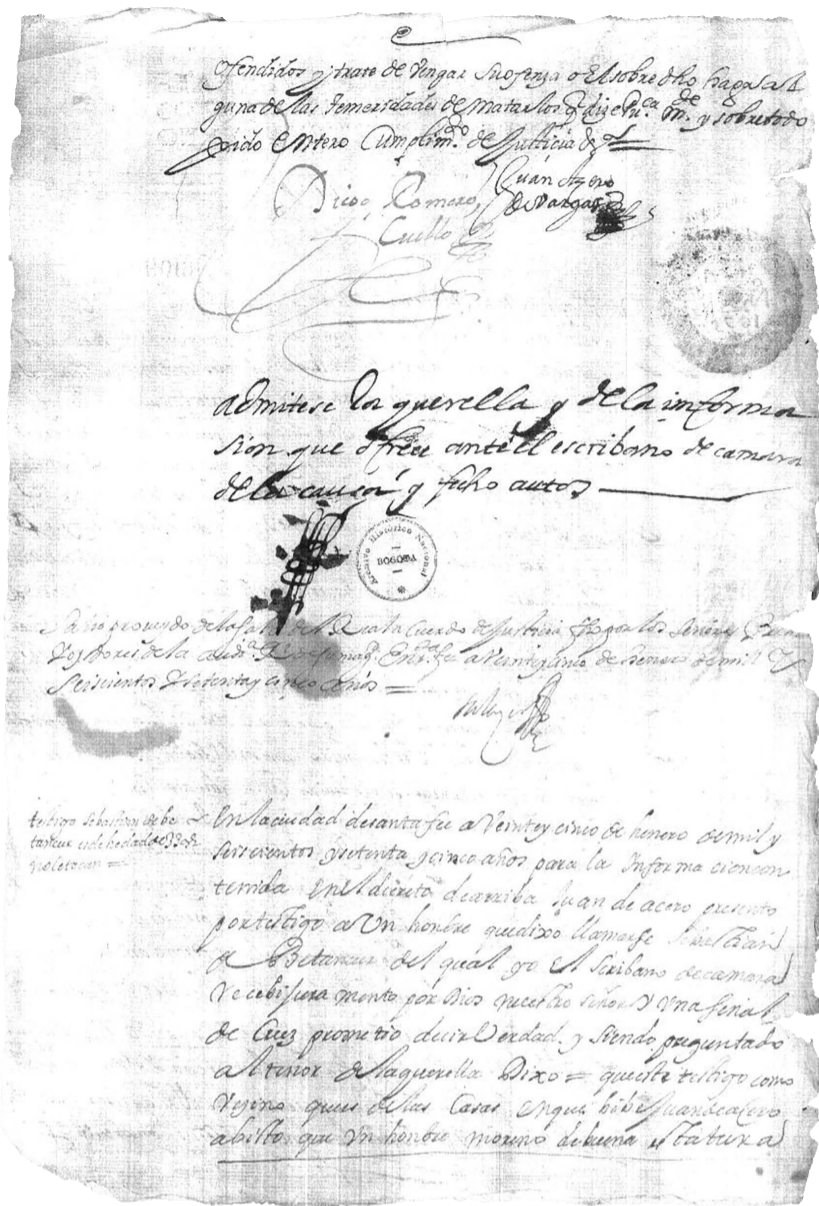 ofendidos y trate de vengar su ofensa o el sobre dho haga al
guna de las temeridades de matarlos q dize y sobre todo
pido entero cumplimto de justicia &
Diego Romero Juan Azero
Cuello de Vargas
admitese la querella y de la informa
sion que ofrece ante el escribano de camara
de la causa y fecho autos
Archivo Histórico Nacional
BOGOTA
proveydo de la sala del Real acuerdo de justicia por los señores
oydores de la audª a veinte y sinco de henero de mill y
seiscientos y setenta y cinco años =
testigo sebastian de be
tancur es de hedad de 33 as
no le tocan =
En la ciudad de santa fee a veinte y cinco de henero de mil y
seiscientos y setenta y cinco años para la informacion con
tenida en el decreto de arriba Juan de acero presento
por testigo a un honbre que dixo llamarse sebastian
de Betancur del qual yo el scribano de camara
recebi juramento por Dios nuestro señor y una señal
de Cruz prometio decir verdad y siendo preguntado
al tenor de la querella Dixo = que este testigo como
vezino que es de las casas en que bibe Juan de acero
a bisto que un honbre moreno de buena estatura